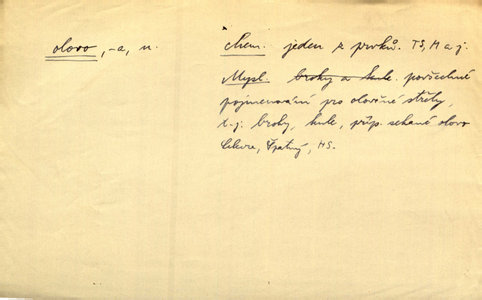 olovo, -a, n. chem. jeden z prvků. TS, M a j.
Mysl. broky a kule. povšechné
pojmenování pro olověné střely,
t. j. broky, kule, příp. sekané olovo
Špatný, HS.